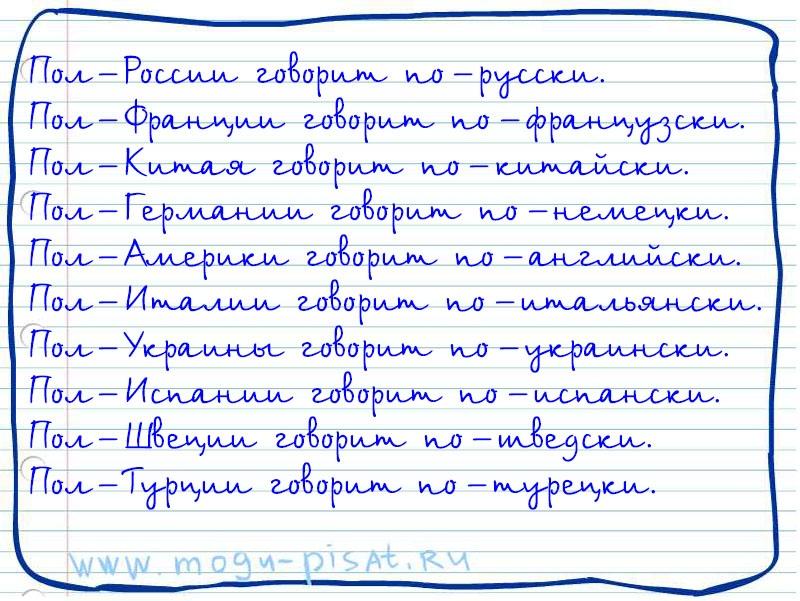 Пол – России говорит по – русски.
Пол – Франции говорит по – французски.
Пол – Китая говорит по – китайски.
Пол – Германии говорит по – немецки.
Пол – Америки говорит по – английски.
Пол – Италии говорит по – итальянски.
Пол – Украины говорит по – украински.
Пол – Испании говорит по – испански.
Пол – Швеции говорит по – шведски.
Пол – Турции говорит по – турецки.
www.mogu-pisat.ru